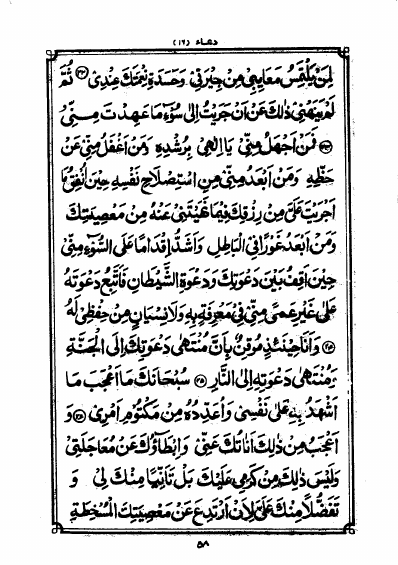 دعاء (١٦)
لِمَنْ يَلْتَمِسُ مَعَايِبِي مِنْ جِيرَتِي وَحَسَدَةِ نِعْمَتِكَ عِنْدِي ثُمَّ
لَمْ يَنْهَنِي ذٰلِكَ عَنْ اَنْ جَرَيْتُ اِلٰى سُوٓءِ مَا عَهِدْتَ مِنّي
فَمَنْ اَجْهَلُ مِنّي يَا اِلٰهِي بِرُشْدِهِ وَمَنْ اَغْفَلُ مِنّي عَنْ
حَظِّهِ وَمَنْ اَبْعَدُ مِنّي مِنِ اسْتِصْلَاحِ نَفْسِهِ حِينَ اُنْفِقُ مَا
اَجْرَيْتَ عَلَيَّ مِنْ رِزْقِكَ فِيمَا نَهَيْتَنِي عَنْهُ مِنْ مَعْصِيَتِكَ
وَمَنْ اَبْعَدُ غَوْرًا فِي الْبَاطِلِ وَاَشَدُّ اِقْدَامًا عَلَى السُّوٓءِ مِنّي
حِينَ اَقِفُ بَيْنَ دَعْوَتِكَ وَدَعْوَةِ الشَّيْطَانِ فَاَتَّبِعُ دَعْوَتَهُ
عَلٰى غَيْرِ عَمًى مِنّي فِي مَعْرِفَةٍ بِهِ وَلَا نِسْيَانٍ مِنْ حِفْظِي لَهُ
وَاَنَا حِينَئِذٍ مُوقِنٌ بِاَنَّ مُنْتَهٰى دَعْوَتِكَ اِلَى الْجَنَّةِ
وَمُنْتَهٰى دَعْوَتِهِ اِلَى النَّارِ سُبْحَانَكَ مَا اَعْجَبَ مَا
اَشْهَدُ بِهِ عَلٰى نَفْسِي وَاُعَدِّدُهُ مِنْ مَكْتُومِ اَمْرِي وَ
اَعْجَبُ مِنْ ذٰلِكَ اَنَاتُكَ عَنّي وَاِبْطَاؤُكَ عَنْ مُعَاجَلَتِي
وَلَيْسَ ذٰلِكَ مِنْ كَرَمِي عَلَيْكَ بَلْ تَاَنِّيًا مِنْكَ لِي وَ
تَفَضُّلًا مِنْكَ عَلَيَّ لِاَنْ اَرْتَدِعَ عَنْ مَعْصِيَتِكَ الْمُسْخِطَةِ
٥٨